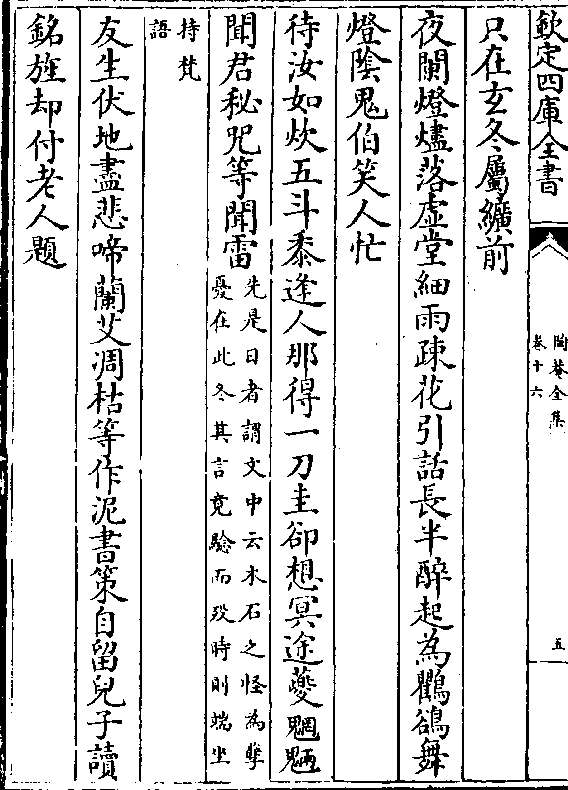 欽定四庫全書
陶菴全集
卷十六
五
只在玄冬屬纊前
夜闌燈燼落虛堂細雨疎花引話長半醉起為鸜鵒舞
燈陰鬼伯笑人忙
待汝如炊五斗黍逢人那得一刀圭卻想冥途夔魍魎
聞君秘咒等聞雷
先是日者謂文中云木石之怪為孽
憂在此冬其言竟驗而歿時則端坐
持梵
語
友生伏地盡悲啼蘭艾凋枯等作泥書策自留兒子讀
銘旌却付老人題